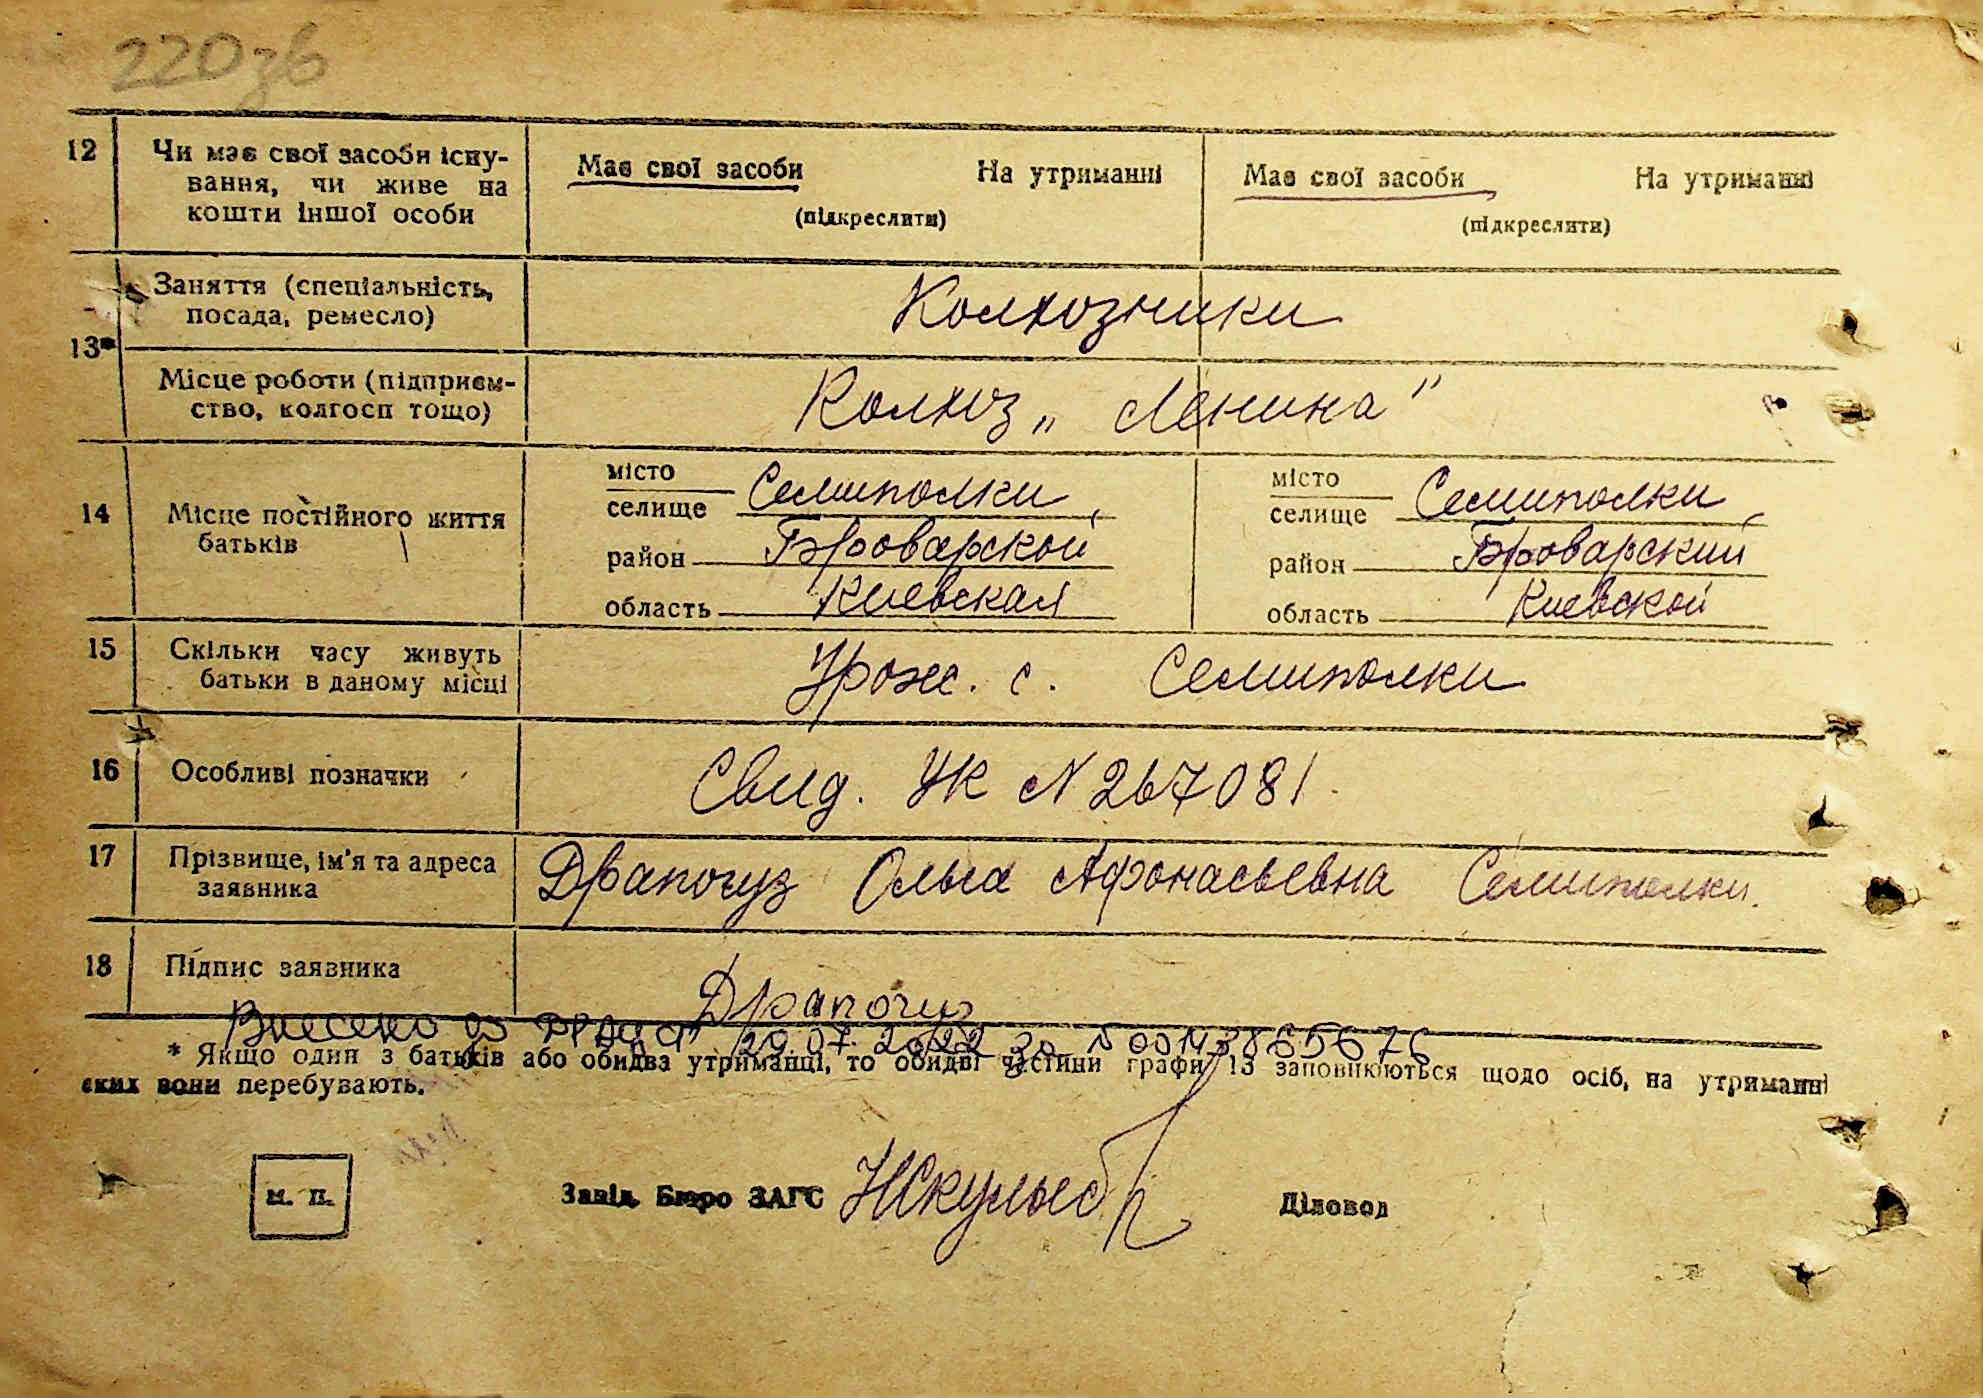 220зв
12 Чи має свої засоби існу-
вання, чи живе на
кошти іншої особи
Має свої засоби На утриманні
(підкреслити)
Має свої засоби На утриманні
(підкреслити)
13*
Заняття (спеціальність,
посада, ремесло)
Колхозники
Місце роботи (підприєм-
ство, колгосп тощо)
Колхоз „Ленина"
14 Місце постійного життя
батьків
місто
селище Семиполки,
район Броварской
область Киевская
місто
селище Семиполки,
район Броварский
область Киевской
15 Скільки часу живуть
батьки в даному місці
Урож. с. Семиполки
16 Особливі позначки
Свид. УК N 267081.
17 Прізвище, ім'я та адреса
заявника
Драпогуз Ольга Афонасьевна Семиполки.
18 Підпис заявника
Драпогуз
Внесено до 29.07.2022 за N 00143865676
* Якщо один з батьків або обидва утриманці, то обидві частини графи 13 заповнюються щодо осіб, на утриманні
яких вони перебувають.
м. п.
Завід. Бюро ЗАГС
Діловод